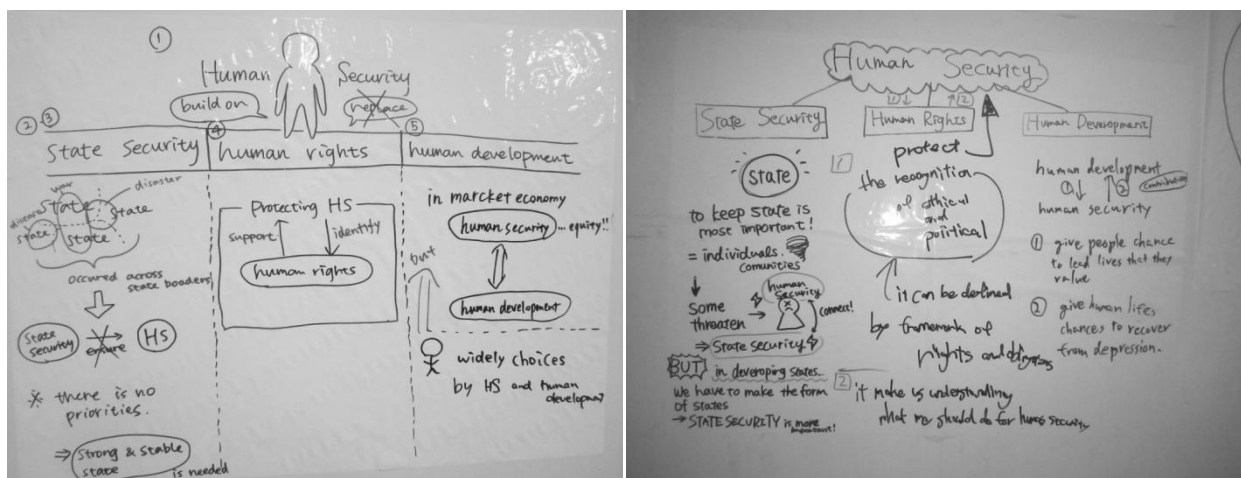 ①
Human Security
build on
replace
② ③
④
⑤
State Security
human rights
human development
war
disaster
disease
state
state
state
state
occured across
state boaders
State
security
ensure
HS
※ there is no
priorities.
⇒ Strong & stable
state
is needed
Protecting HS
support
identity
human rights
in marcket economy
human security ... equity!!
but
human development
widely choices
by HS and human
development
Human Security
① ↓ ↑ ②
State Security
Human Rights
Human Development
state
to keep state is
most important!
= individuals.
comunities
↓
Some
threaten →
human
security
connect!
⇒ State security
BUT in deveroping states...
we have to make the form
of states
→ STATE SECURITY is more
important!
1
protect
the recognition
of ethical
and
political
it can be defined
by framework of
rights and obligations
2 it make us understanding
what we should do for human security
human development
① ↓ ↑ ② contribution
human security
① give people chance
to lead lives that they
value
② give human lifes
chances to recover
from depression.